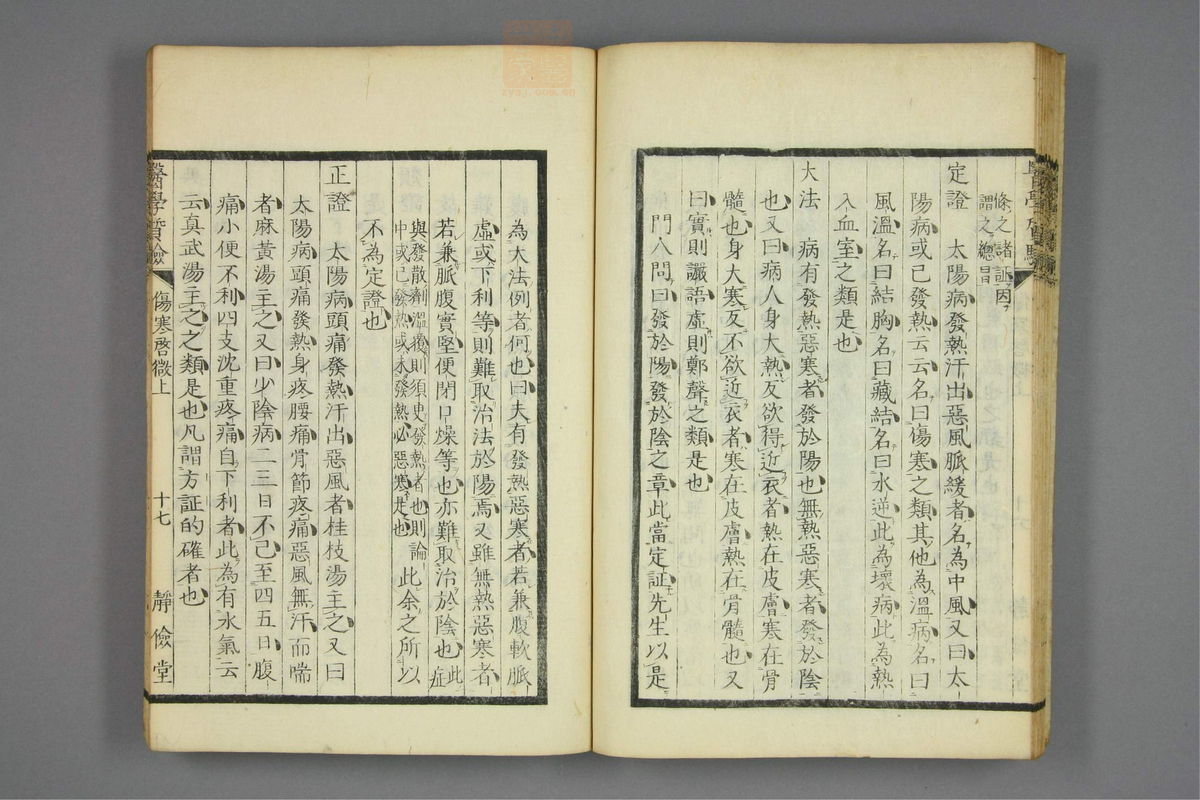 條之諸証因
謂之總目
定證　太陽病發熱汗出惡風脈緩者名為中風又曰太
陽病或已發熱云云名曰傷寒之類其他為溫病名曰
風溫名曰結胸名曰藏結名曰水逆此為壞病此為熱
入血室之類是也
大法　病有發熱惡寒者發於陽也無熱惡寒者發於陰
也又曰病人身大熱反欲得近衣者熱在皮膚寒在骨
髓也身大寒反不欲近衣者寒在皮膚熱在骨髓也又
曰實則讝語虛則鄭聲之類是也
門人問曰發於陽發於陰之章此當定証先生以是
為大法例者何也曰夫有發熱惡寒者若兼腹軟脈
虛或下利等則難取治法於陽焉又雖無熱惡寒者
若兼脈腹實堅便閉口燥等也亦難取治於陰也此症
與發散劑溫覆則須臾發熱者也則論
中或已發熱或未發熱必惡寒是也
此余之所以
不為定證也
正證　太陽病頭痛發熱汗出惡風者桂枝湯主之又曰
太陽病頭痛發熱身疼腰痛骨節疼痛惡風無汗而喘
者麻黃湯主之又曰少陰病二三日不已至四五日腹
痛小便不利四支沈重疼痛自下利者此為有水氣云
云真武湯主之之類是也凡謂方証的確者也
醫學質驗
傷寒啓微上
十七
靜儉堂